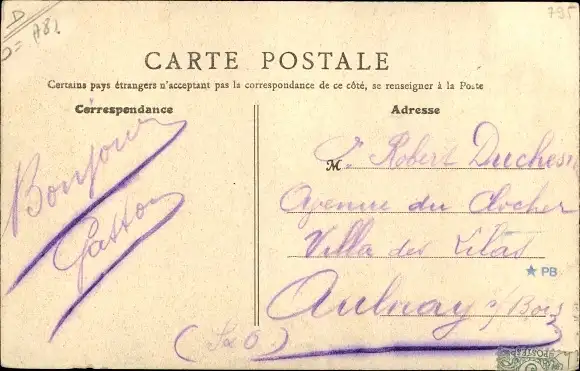 D
D= A82
795
CARTE POSTALE
Certains pays étrangers n'acceptant pas la correspondance de ce côté, se renseigner à la Poste
Correspondance
Adresse
Bonjour
Gaston
M. Robert Duchesn
Avenue du Clocher
Villa des Lilas
Aulnay s/ Bois
(S & O)
★ PB
POSTES